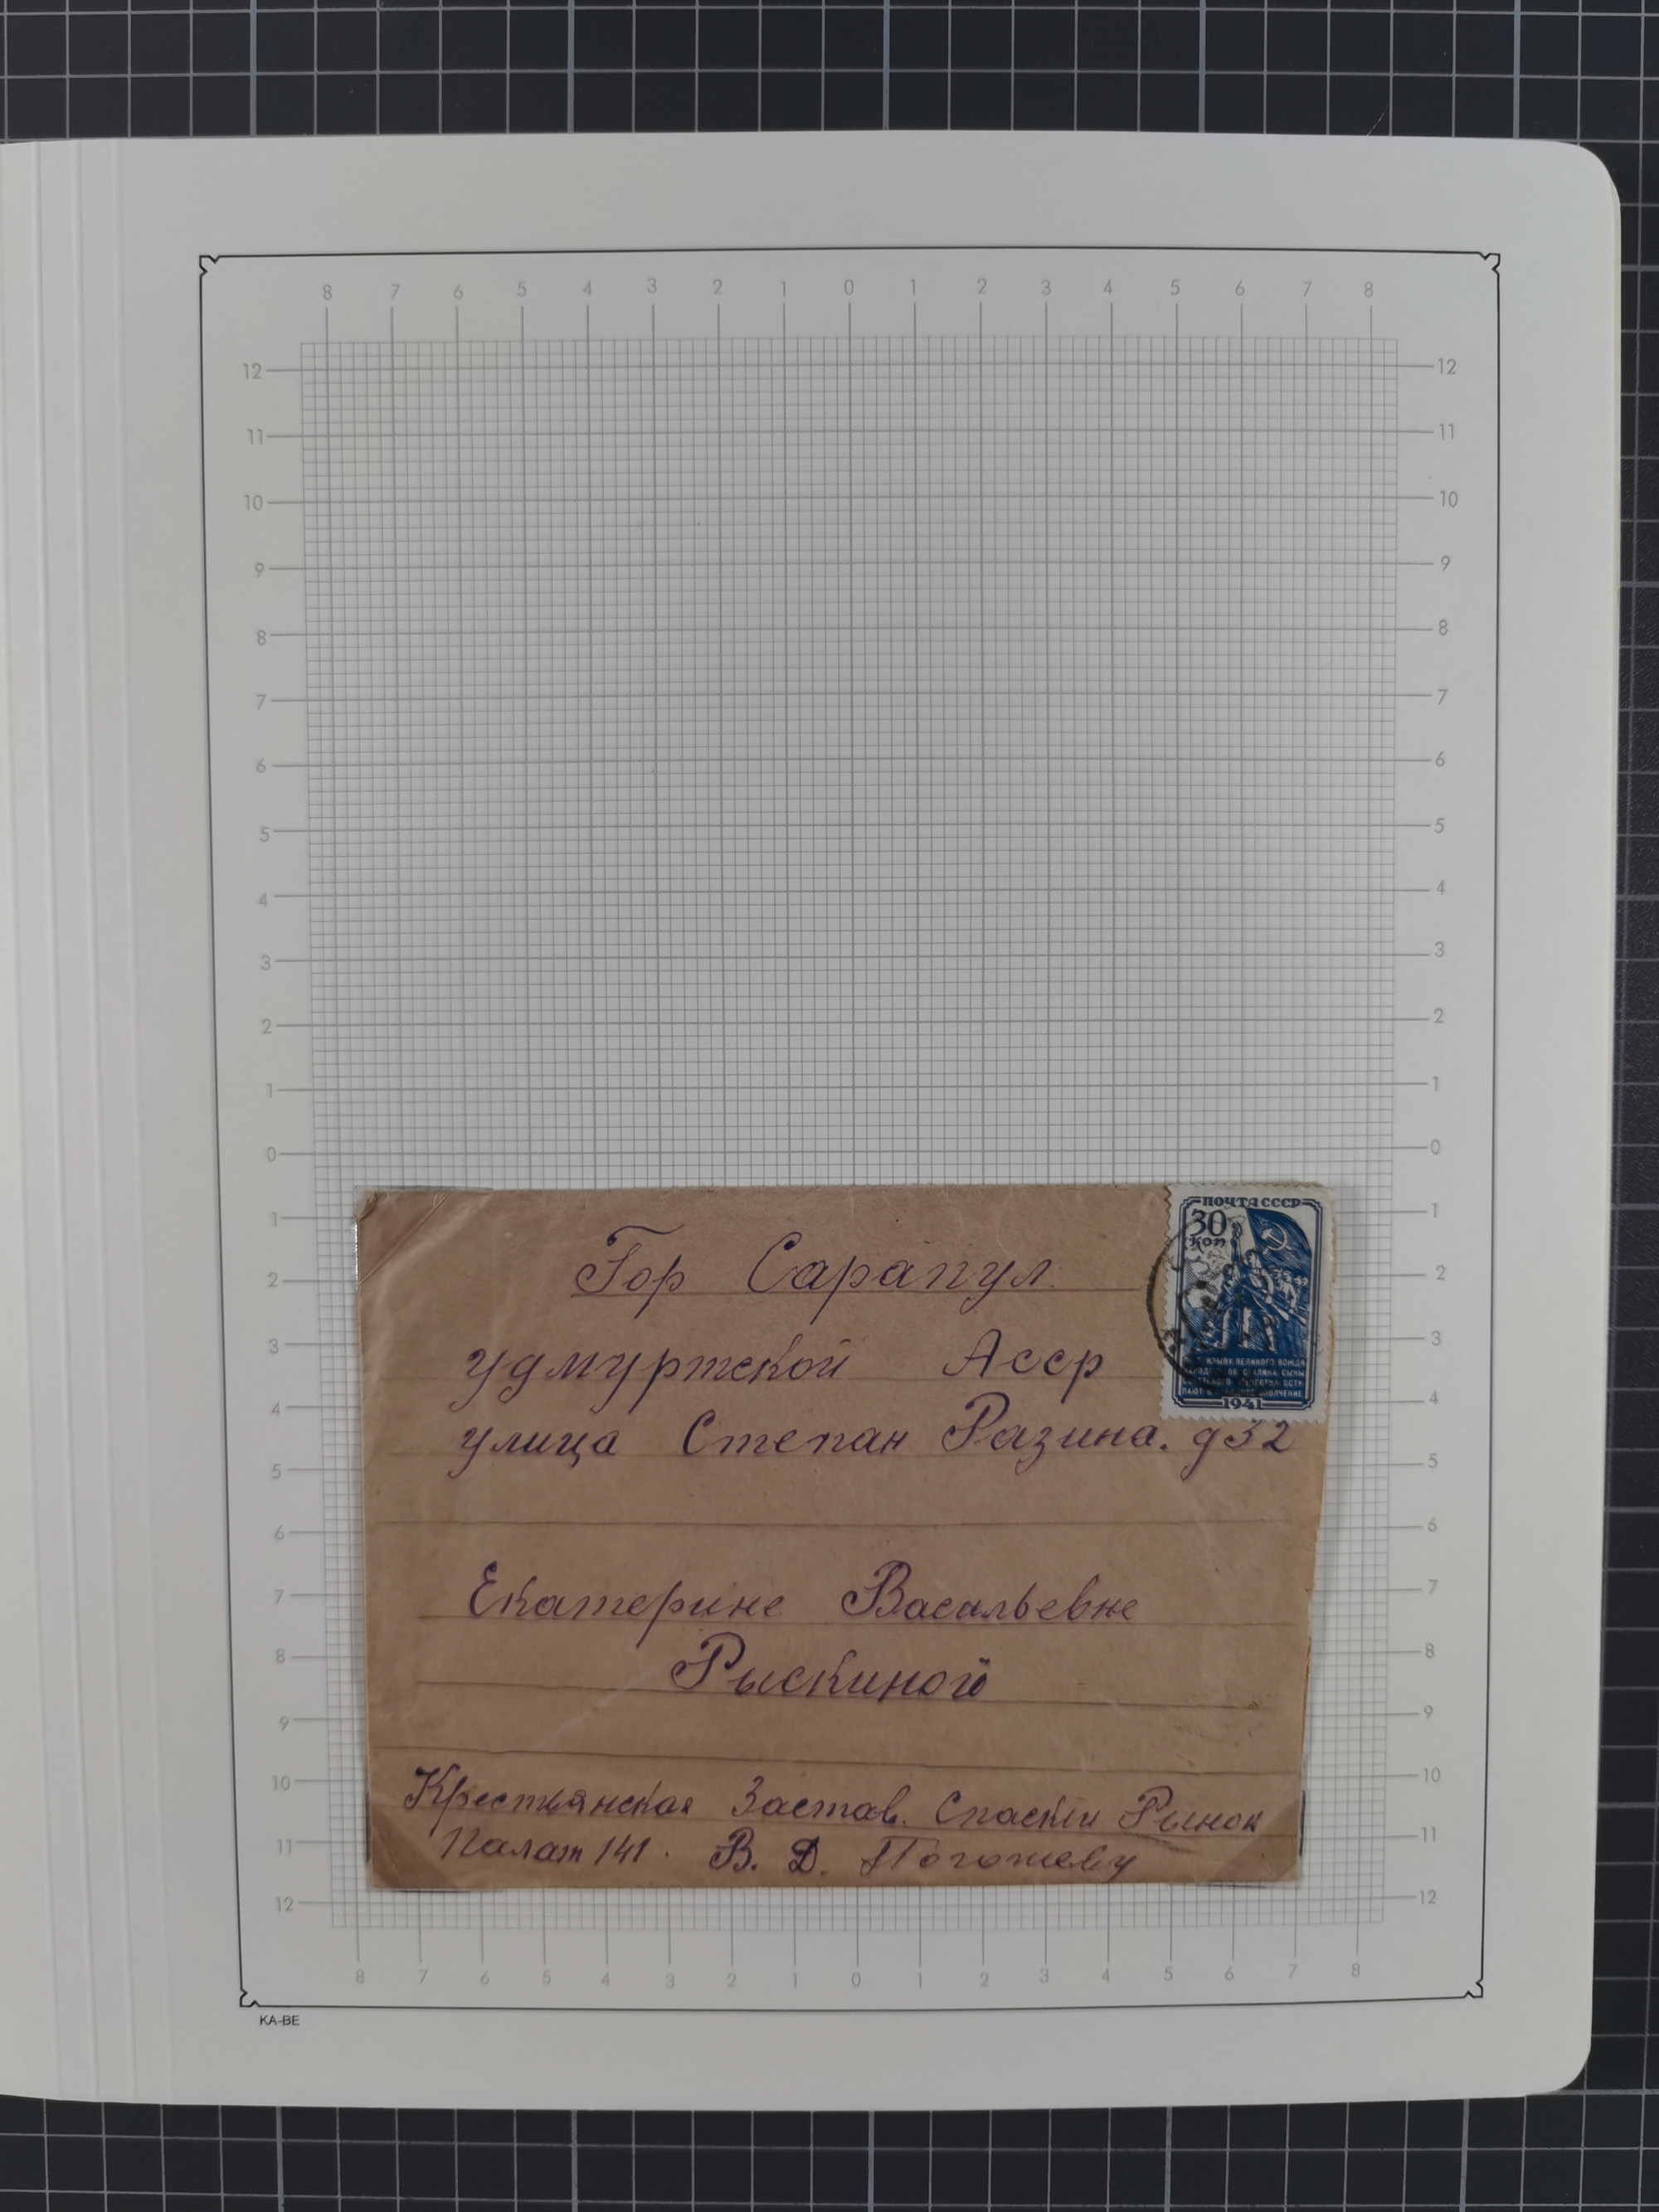 8 7 6 5 4 3 2 1 0 1 2 3 4 5 6 7 8
12 12
11 11
10 10
9 9
8 8
7 7
6 6
5 5
4 4
3 3
2 2
1 1
0 0
1 1
2 2
3 3
4 4
5 5
6 6
7 7
8 8
9 9
10 10
11 11
12 12
ПОЧТА СССР
30
КОП
ВЕЛИКОГО ВОЖДЯ
СТАЛИНА СЫНЫ
1941
Гор Сарапул
удмуртской Асср
улица Степан Разина. д 32
Екатерине Васильевне
Рыскиной
Крестьянская Застав. Спаскiй Рынок
Палат 141. В. Д. Погожеву
8 7 6 5 4 3 2 1 0 1 2 3 4 5 6 7 8
KA-BE